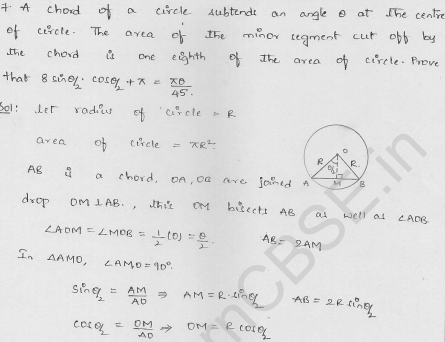 7. A chord of a circle subtends an angle θ at the centre
of circle. The area of the minor segment cut off by
the chord is one eighth of the area of circle. Prove
that 8 sinθ/2. cosθ/2 + π = πθ/45.
Sol: let radius of circle = R
area of circle = πR².
AB is a chord, OA, OB are joined
drop OM⊥AB., this OM bisects AB as well as ∠AOB.
∠AOM = ∠MOB = 1/2(θ) = θ/2. AB = 2AM
In ΔAMO, ∠AMO = 90°.
sinθ/2 = AM/AO ⇒ AM = R.sinθ/2 AB = 2R sinθ/2
cosθ/2 = OM/AO ⇒ OM = R cosθ/2
O
R θ/2 R
A M B
mCBSE.in